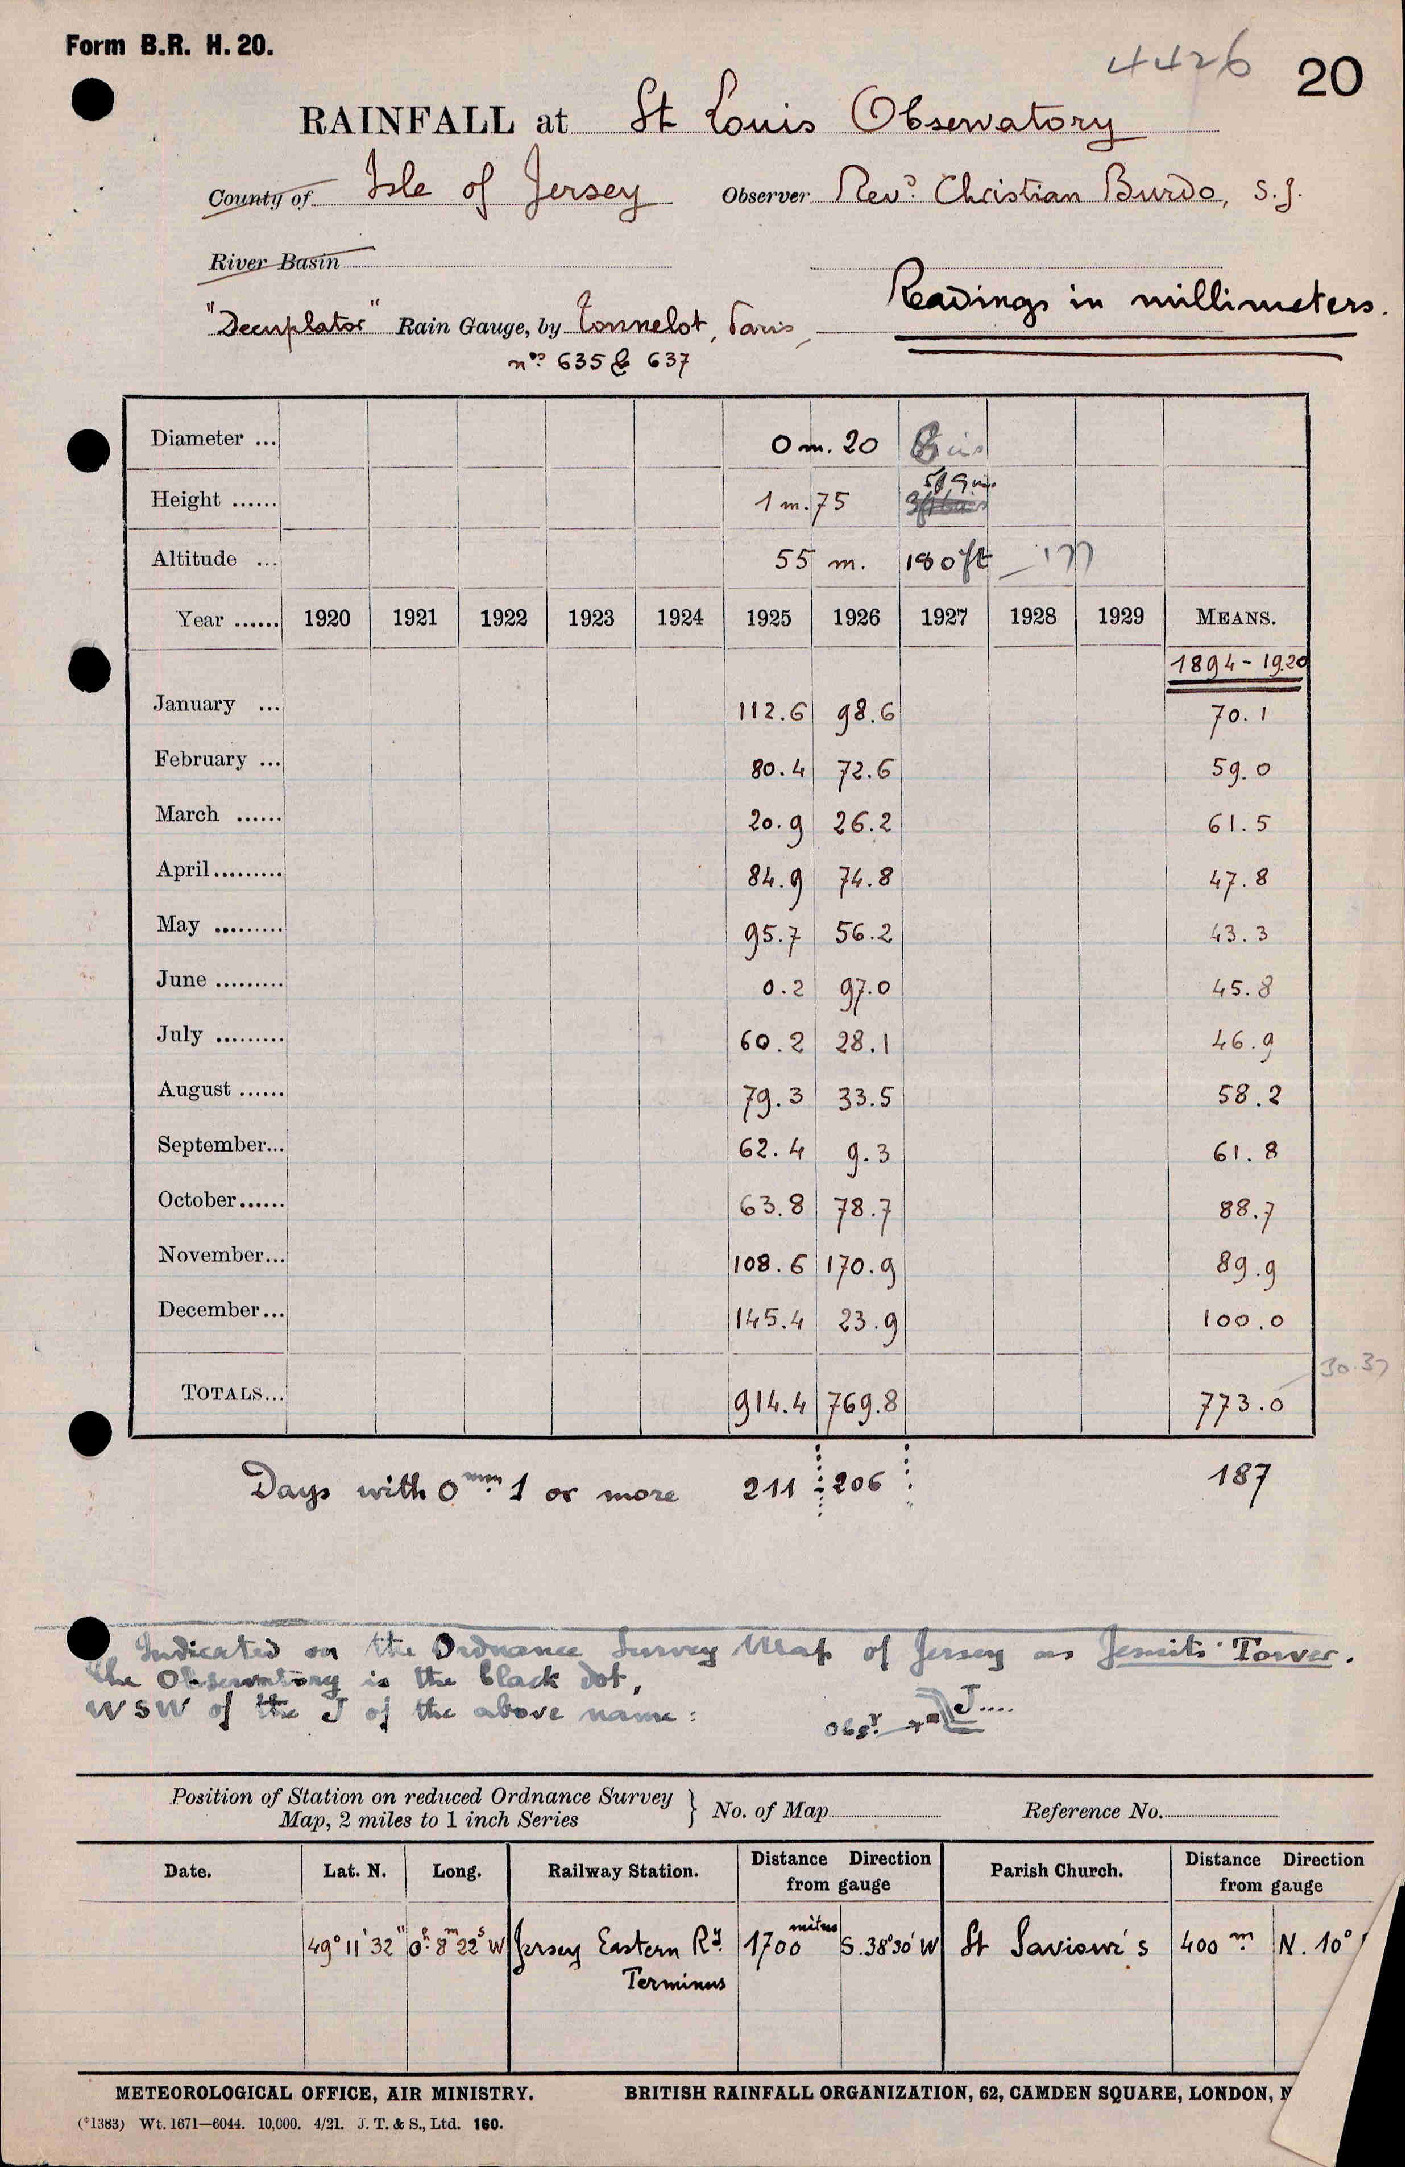 Form B.R. H. 20.
4426 20
RAINFALL at St Louis Observatory
County of Isle of Jersey Observer Revd. Christian Burdo, S.J.
River Basin
Readings in millimeters.
"Decuplator" Rain Gauge, by Tonnelot, Paris,
nos. 635 & 637
Diameter ... 0 m. 20 8 ins
Height ...... 1 m. 75 5ft 9 ins
Altitude ... 55 m. 180 ft 177
Year ...... 1920 1921 1922 1923 1924 1925 1926 1927 1928 1929 MEANS.
1894 - 1920
January ... 112.6 98.6 70.1
February ... 80.4 72.6 59.0
March ...... 20.9 26.2 61.5
April ......... 84.9 74.8 47.8
May ......... 95.7 56.2 43.3
June ......... 0.2 97.0 45.8
July ......... 60.2 28.1 46.9
August ...... 79.3 33.5 58.2
September... 62.4 9.3 61.8
October ...... 63.8 78.7 88.7
November... 108.6 170.9 89.9
December... 145.4 23.9 100.0
30.37
TOTALS... 914.4 769.8 773.0
Days with 0 mm. 1 or more 211 206 187
Indicated on the Ordnance Survey Map of Jersey as Jesuits' Tower.
The Observatory is the black dot,
WSW of the J of the above name:
Obsy. J....
Position of Station on reduced Ordnance Survey
Map, 2 miles to 1 inch Series } No. of Map Reference No.
Date. Lat. N. Long. Railway Station. Distance Direction from gauge Parish Church. Distance Direction from gauge
49° 11' 32" 0h. 8m 22s W Jersey Eastern Ry. Terminus 1700 mètres S. 38°30' W St Saviour's 400 m. N. 10°
METEOROLOGICAL OFFICE, AIR MINISTRY. BRITISH RAINFALL ORGANIZATION, 62, CAMDEN SQUARE, LONDON, N
(*1383) Wt. 1671—6044. 10,000. 4/21. J. T. & S., Ltd. 160.